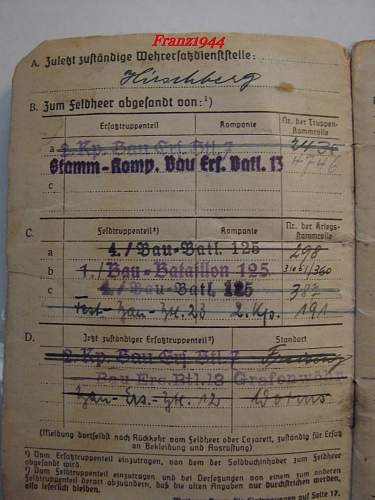 Franz1944
A. Zuletzt zuständige Wehrersatzdienststelle:
Hirschberg
B. Zum Feldheer abgesandt von:¹)
Ersatztruppenteil Kompanie Nr. der Truppen-
stammrolle
a 2. Kp. Bau Ers. Btl. 7
b Stamm-Komp. Bau Ers. Batl. 13 4746
c
C. Feldtruppenteil²) Kompanie Nr. der Kriegs-
stammrolle
a 4./Bau-Batl. 125 298
b 1./Bau-Bataillon 125
c 4./Bau-Batl. 125 383
2. Kp. 191
D. Jetzt zuständiger Ersatztruppenteil²) Standort
2. Kp. Bau Ers. Btl. 7
Bau Ers. Btl. 13 Grafenwöhr
Bau-Ers.-Btl. 12 Worms
(Meldung dortselbst nach Rückkehr vom Feldheer oder Lazarett, zuständig für Ersatz
an Bekleidung und Ausrüstung)
¹) Vom Ersatztruppenteil einzutragen, von dem der Soldbuchinhaber zum Feldheer
abgesandt wird.
²) Vom Feldtruppenteil einzutragen und bei Versetzungen von einem zum anderen
Feldtruppenteil derart abzuändern, daß die alten Angaben nur durchstrichen werden,
also leserlich bleiben.